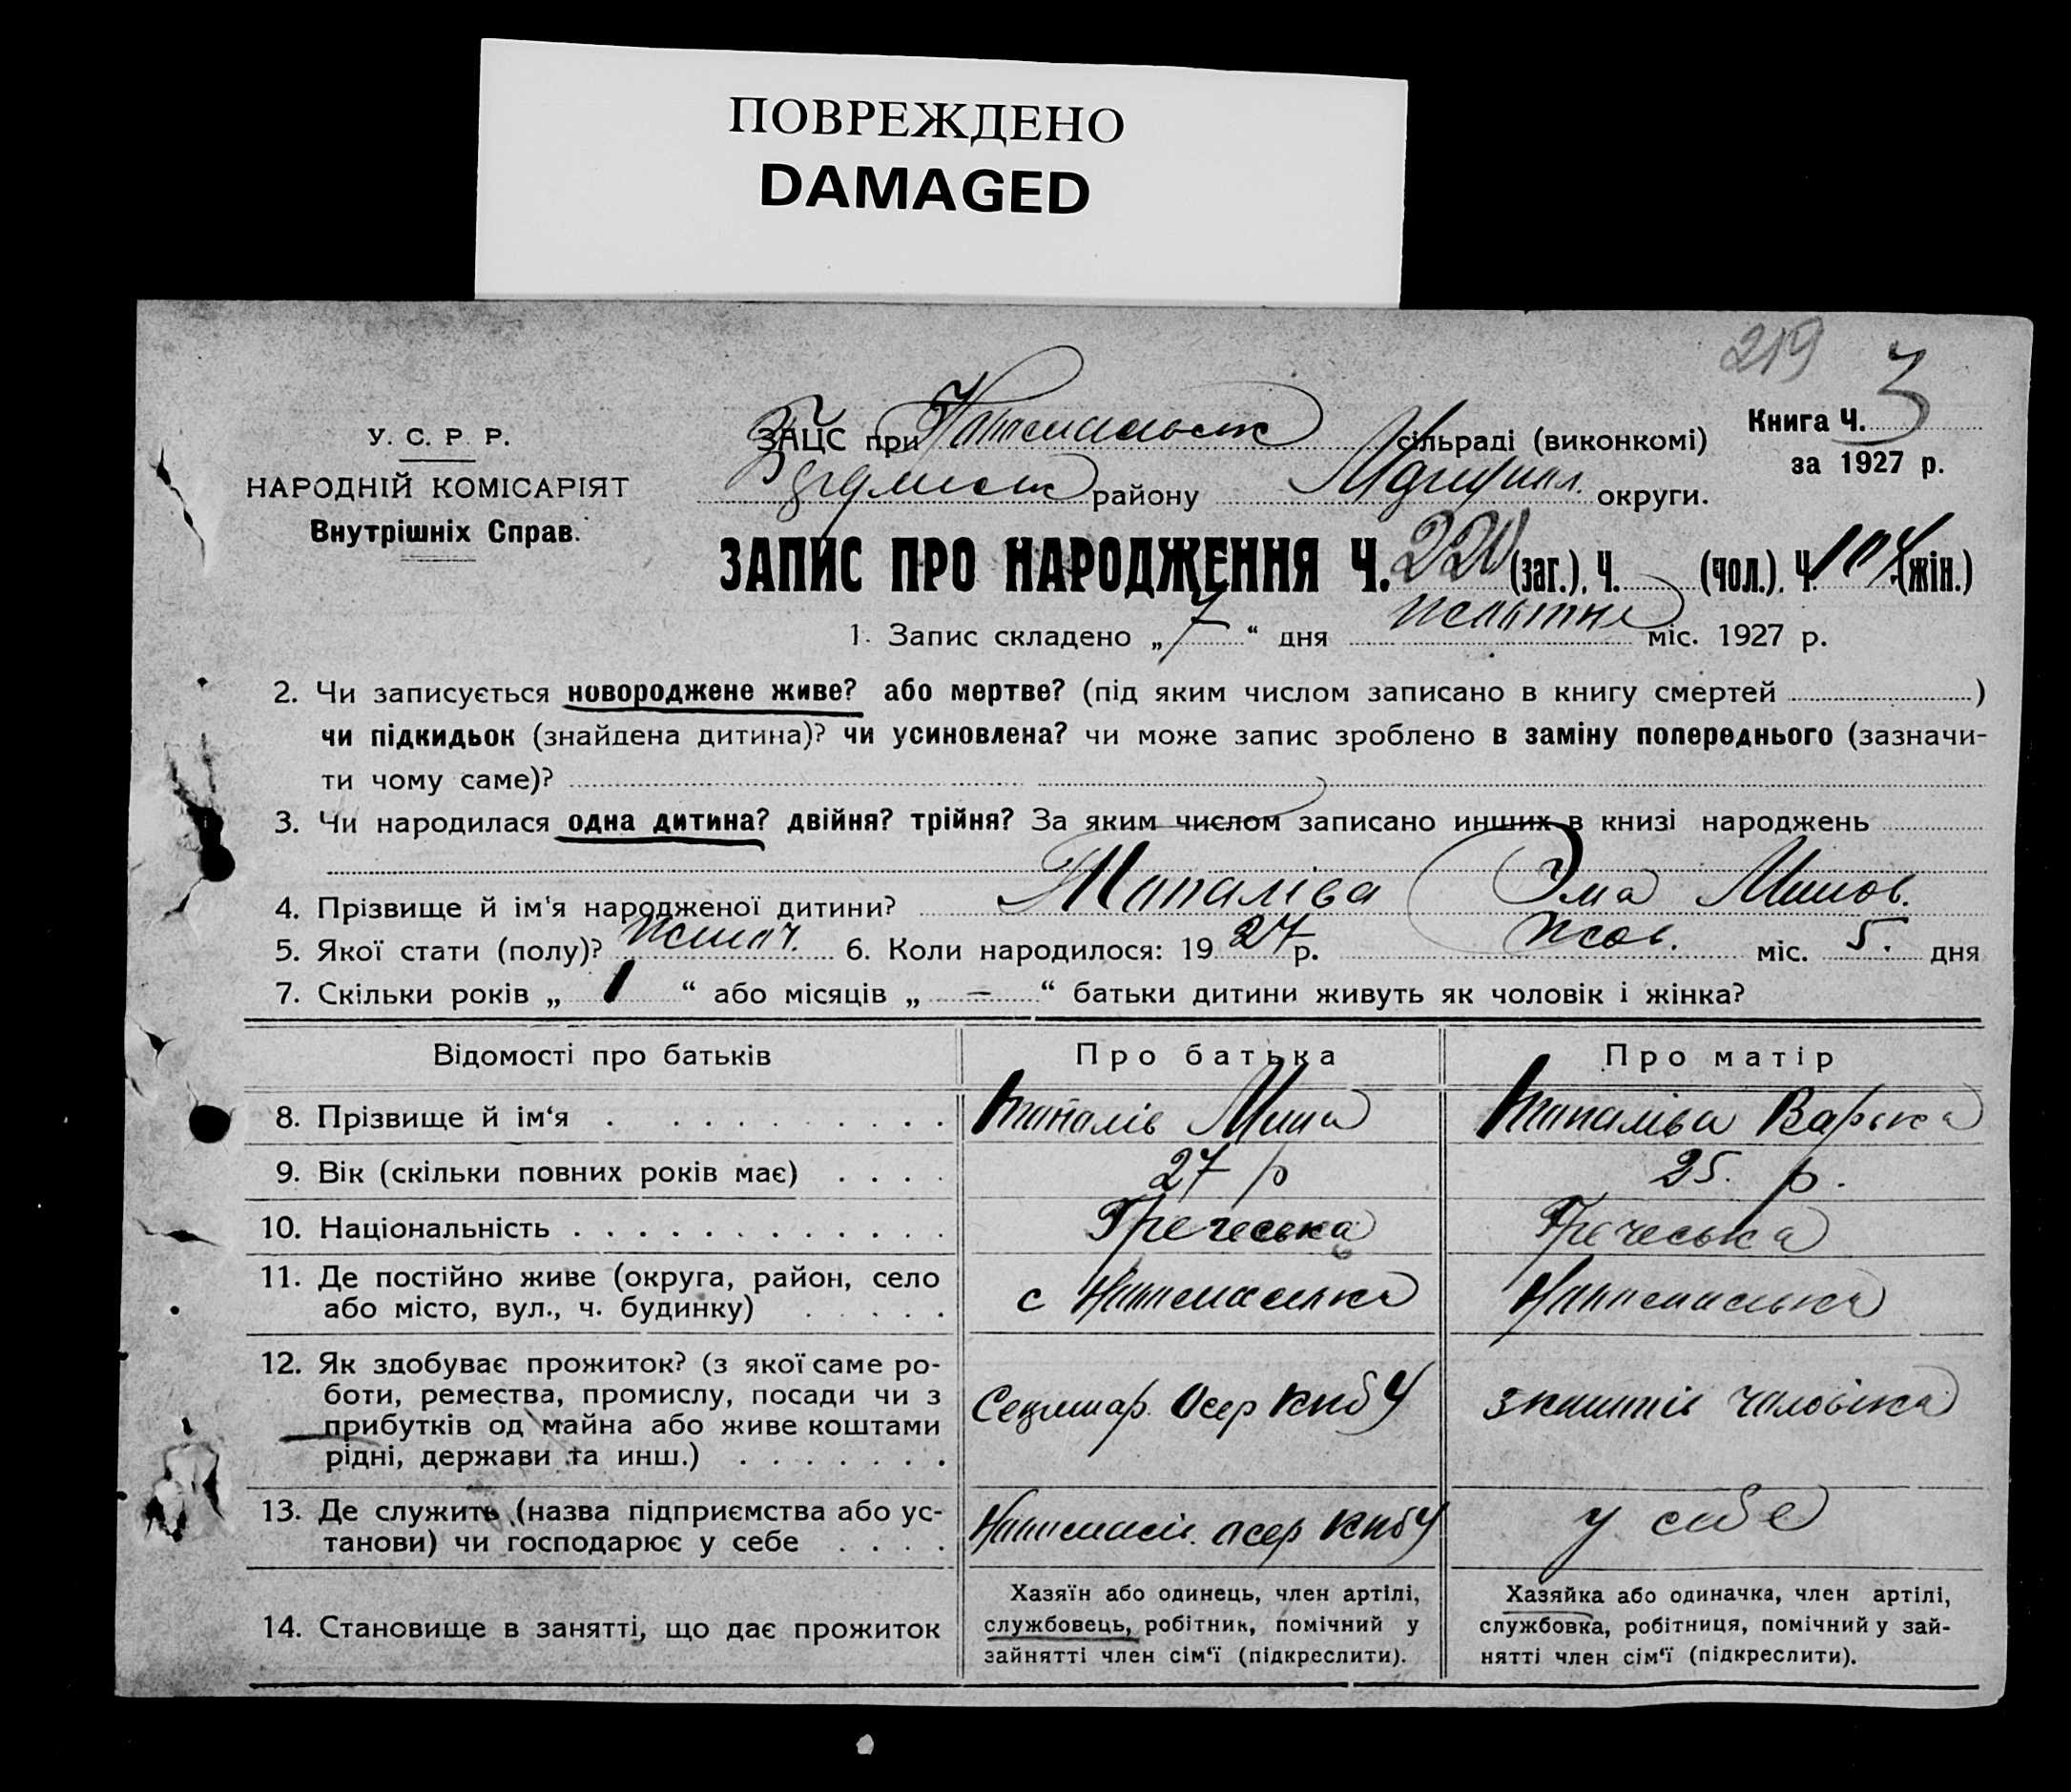 ПОВРЕЖДЕНО
DAMAGED
219
У. С. Р. Р.
НАРОДНІЙ КОМІСАРІЯТ
Внутрішніх Справ.
ЗАЦС при сільраді (виконкомі)
Книга Ч. 3
за 1927 р.
району Маріупіл. округи.
ЗАПИС ПРО НАРОДЖЕННЯ Ч. 220 (заг.), Ч. (чол.), Ч. 104 (жін.)
1. Запис складено „ 7 “ дня жовтня міс. 1927 р.
2. Чи записується новороджене живе? або мертве? (під яким числом записано в книгу смертей )
чи підкидьок (знайдена дитина)? чи усиновлена? чи може запис зроблено в заміну попереднього (зазначи-
ти чому саме)?
3. Чи народилася одна дитина? двійня? трійня? За яким числом записано инших в книзі народжень
4. Прізвище й ім'я народженої дитини? Эма
5. Якої стати (полу)? жіноч. 6. Коли народилося: 19 27 р. жов. міс. 5. дня
7. Скільки років „ 1 “ або місяців „ – “ батьки дитини живуть як чоловік і жінка?
Відомості про батьків Про батька Про матір
8. Прізвище й ім‘я Миша
9. Вік (скільки повних років має) 27 р 25. р.
10. Національність Гречеська Гречеська
11. Де постійно живе (округа, район, село
або місто, вул., ч. будинку) с
12. Як здобуває прожиток? (з якої саме ро-
боти, ремества, промислу, посади чи з
прибутків од майна або живе коштами
рідні, держави та инш.) КПбУ з коштів чоловіка
13. Де служить (назва підприємства або ус-
танови) чи господарює у себе осер КПбУ у себе
14. Становище в занятті, що дає прожиток
Хазяїн або одинець, член артілі,
службовець, робітник, помічний у
зайнятті член сім‘ї (підкреслити).
Хазяйка або одиначка, член артілі,
службовка, робітниця, помічний у зай-
нятті член сім‘ї (підкреслити).